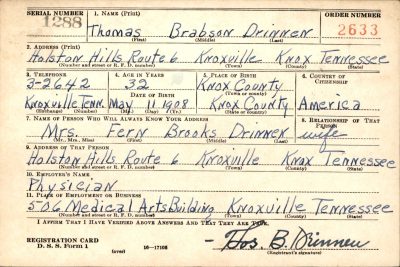 SERIAL NUMBER 1. NAME (Print) ORDER NUMBER
1288 Thomas Brabson Drinnen 2633
(First) (Middle) (Last)
2. ADDRESS (Print)
Holston Hills Route 6 Knoxville Knox Tennessee
(Number and street or R. F. D. number) (Town) (County) (State)
3. TELEPHONE 4. AGE IN YEARS 5. PLACE OF BIRTH 6. COUNTRY OF CITIZENSHIP
3-2642 32 Knox County
DATE OF BIRTH (Town or county)
Knoxville Tenn. May 11 1908 Knox County America
(Exchange) (Number) (Mo.) (Day) (Yr.) (State or country)
7. NAME OF PERSON WHO WILL ALWAYS KNOW YOUR ADDRESS 8. RELATIONSHIP OF THAT PERSON
Mrs. Fern Brooks Drinnen wife
(Mr., Mrs., Miss) (First) (Middle) (Last)
9. ADDRESS OF THAT PERSON
Holston Hills Route 6 Knoxville Knox Tennessee
(Number and street or R. F. D. number) (Town) (County) (State)
10. EMPLOYER'S NAME
Physician
11. PLACE OF EMPLOYMENT OR BUSINESS
506 Medical Arts Building Knoxville Tennessee
(Number and street or R. F. D. number) (Town) (County) (State)
I AFFIRM THAT I HAVE VERIFIED ABOVE ANSWERS AND THAT THEY ARE TRUE.
REGISTRATION CARD
D. S. S. Form 1 16—17105 Thos. B. Drinnen
(over) (Registrant's signature)